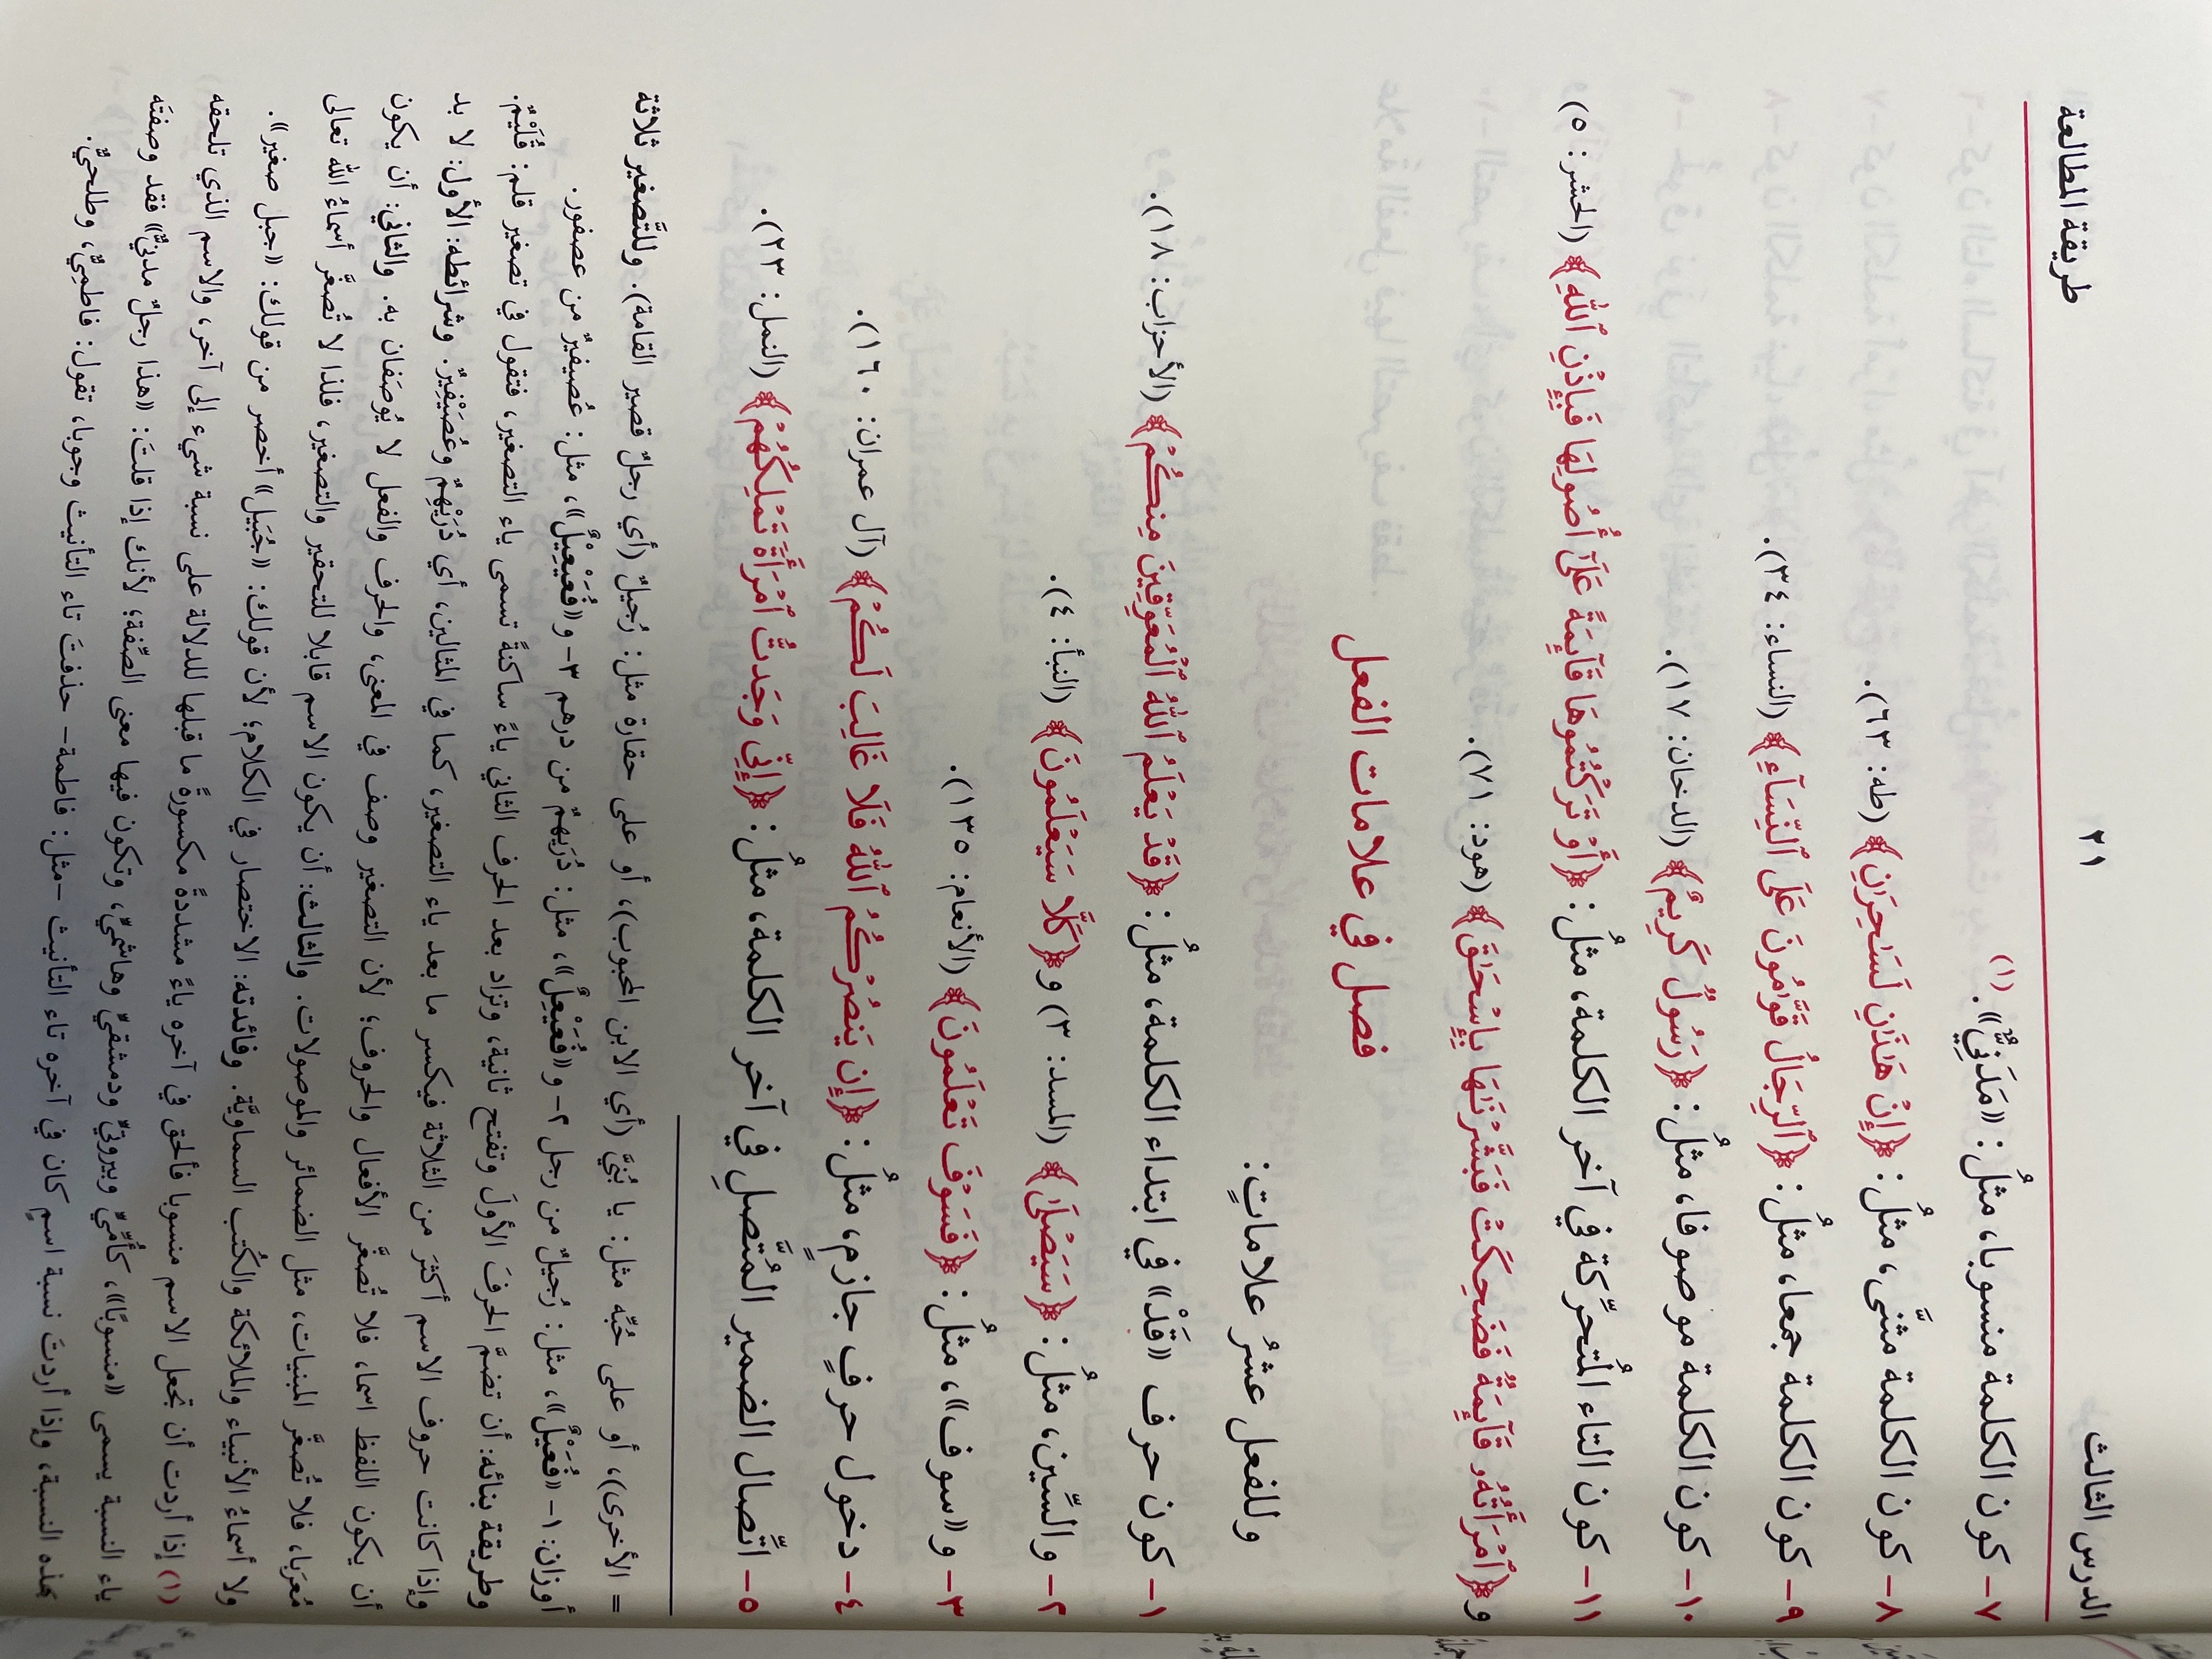 الدرس الثالث ٢١ طريقة المطالعة
٧- كون الكلمة منسوبا، مثلُ: «مَدَنِيٌّ».(١)
٨- كون الكلمة مثنَّى، مثلُ: ﴿إِنْ هَٰذَٰنِ لَسَٰحِرَٰنِ﴾ (طه: ٦٣).
٩- كون الكلمة جمعا، مثلُ: ﴿ٱلرِّجَالُ قَوَّٰمُونَ عَلَى ٱلنِّسَآءِ﴾ (النساء: ٣٤).
١٠- كون الكلمة موصوفا، مثلُ: ﴿رَسُولٌ كَرِيمٌ﴾ (الدخان: ١٧).
١١- كون التاء المُتحرِّكة في آخر الكلمة، مثلُ: ﴿أَوْ تَرَكْتُمُوهَا قَآئِمَةً عَلَىٰٓ أُصُولِهَا فَبِإِذْنِ ٱللَّهِ﴾ (الحشر: ٥)
و﴿ٱمْرَأَتُهُۥ قَآئِمَةٌ فَضَحِكَتْ فَبَشَّرْنَٰهَا بِإِسْحَٰقَ﴾ (هود: ٧١).
فصل في علامات الفعل
وللفعل عشرُ علاماتٍ:
١- كون حرف «قَدْ» في ابتداء الكلمة، مثلُ: ﴿قَدْ يَعْلَمُ ٱللَّهُ ٱلْمُعَوِّقِينَ مِنكُمْ﴾ (الأحزاب: ١٨).
٢- والسِّين، مثلُ: ﴿سَيَصْلَىٰ﴾ (المسد: ٣) و﴿كَلَّا سَيَعْلَمُونَ﴾ (النبأ: ٤).
٣- و«سوف»، مثلُ: ﴿فَسَوْفَ تَعْلَمُونَ﴾ (الأنعام: ١٣٥).
٤- دخول حرفٍ جازمٍ، مثلُ: ﴿إِن يَنصُرْكُمُ ٱللَّهُ فَلَا غَالِبَ لَكُمْ﴾ (آل عمران: ١٦٠).
٥- اتِّصال الضمير المُتَّصلِ في آخر الكلمة، مثلُ: ﴿إِنِّي وَجَدتُّ ٱمْرَأَةً تَمْلِكُهُمْ﴾ (النمل: ٢٣).
= الأخرى))، أو على حُبِّه مثل: يا بُنَيَّ (أي الابن المحبوب)، أو على حقارة مثل: رُجيلٌ (أي رجلٌ قصير القامة). وللتَّصغير ثلاثة
أوزان: ١- «فُعَيْلٌ»، مثل: رُجيلٌ من رجل ٢- و«فُعَيْعِلٌ»، مثل: دُرَيهمٌ من درهم ٣- و«فُعَيْعِيلٌ»، مثل: عُصيفيرٌ من عصفور.
وطريقة بنائه: أن تضمَّ الحرفَ الأولَ وتفتح ثانية، وتزاد بعد الحرف الثاني ياءً ساكنةً تسمى ياء التصغير، فتقول في تصغير قلم: قُلَيْمٌ.
وإذا كانت حروف الاسم أكثرَ من الثلاثة فيكسر ما بعد ياء التصغير، كما في المثالين، أي دُرَيْهِمٌ وعُصَيْفِيرٌ. وشرائطه: الأول: لا بد
أن يكون اللفظ اسما، فلا تُصغَّر الأفعال والحروف؛ لأن التصغير وصف في المعنى، والحرف والفعل لا يُوصَفان به. والثاني: أن يكون
مُعرَبا، فلا تُصغَّر المبنيات، مثل الضمائر والموصولات. والثالث: أن يكون الاسم قابلا للتحقير والتصغير، فلذا لا تُصغَّر أسماءُ الله تعالى
ولا أسماءُ الأنبياء والملائكة والكُتب السماويَّة. وفائدته: الاختصار في الكلام؛ لأن قولك: «جُبَيل» أخصر من قولك: «جبل صغير».
(١) إذا أردت أن تجعل الاسم منسوبا فألحق في آخره ياءً مشددةً مكسورةً ما قبلها للدلالة على نسبة شيء إلى آخر، والاسم الذي تلحقه
ياء النسبة يسمى «منسوبًا»، كأُمِّيٍّ وبيروتيٍّ ودمشقيٍّ وهاشميٍّ، وتكون فيها معنى الصِّفة؛ لأنك إذا قلتَ: «هذا رجلٌ مدنيٌّ» فقد وصفتَه
بهذه النسبة، وإذا أردتَ نسبة اسمٍ كان في آخره تاء التأنيث -مثل: فاطمة- حذفتَ تاء التأنيث وجوبا، تقول: فاطميٌّ، وطلحيٌّ.